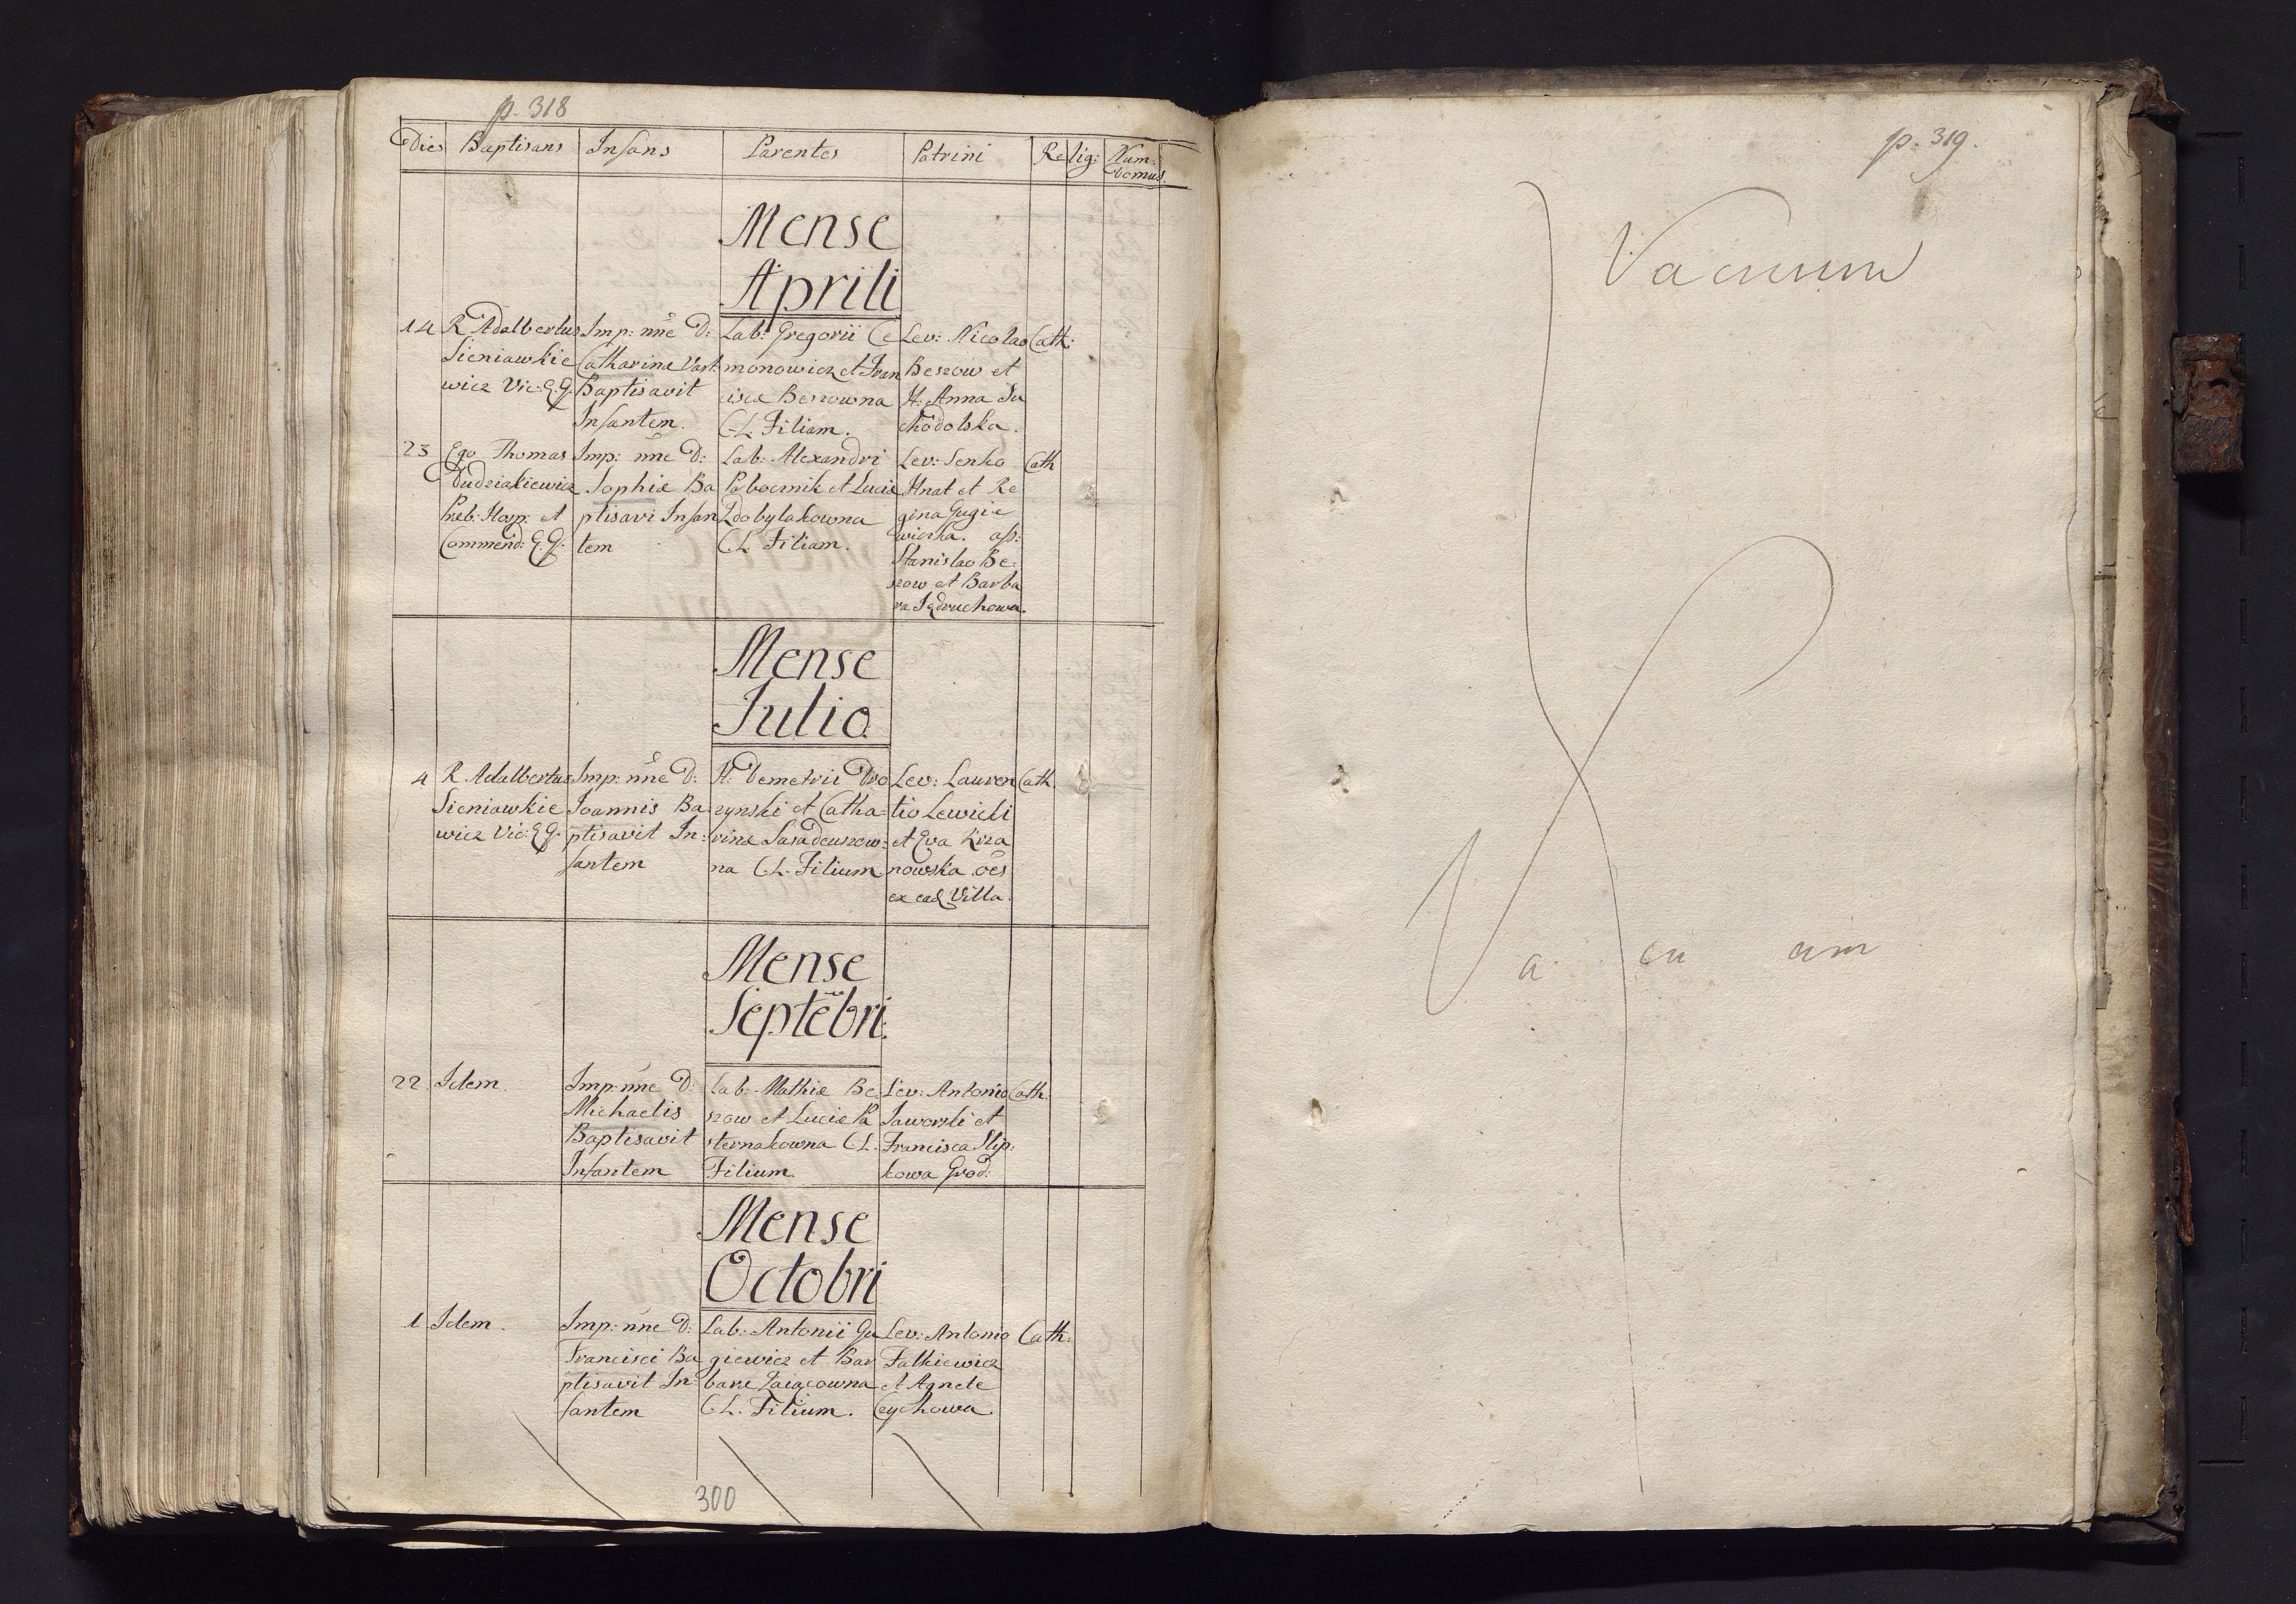 p. 318
Dies Baptisans Infans Parentes Patrini Relig: Num: Domus.
Mense
Aprili
14 R Adalbertus
Sieniawkie
wicz Vic: E.G.
Imp: nne D:
Catharinæ Vart:
Baptisavit
Infantem.
Lab: Gregorii Ce
monowicz et Fran
ciscæ Beszowna
C.L. Filiam.
Lev: Nicolao
Beszow et
H: Anna Su
chodolska.
Cath:
23 Ego Thomas
Dudziakiewicz
Preb: Hosp: et
Commend: E.G.
Imp: nne D:
Sophiæ Ba
ptisavi Infan
tem
Lab: Alexandri
Poboemik et Luciæ
Zdobylakowna
C.L. Filiam.
Lev: Senko
Hnat et Re
gina Gugie
wiczka. ass:
Stanislao Be:
szow et Barba
ra Jędruchowa.
Cath
Mense
Julio.
4 R. Adalbertus
Sieniawkie
wicz Vic: E.G.
Imp: nne D:
Joannis Ba
ptisavit In:
fantem
H: Demetrii Dro
zynski et Catha:
rinæ Saradeuszow:
na C.L. Filium
Lev: Lauren
tio Lewicki
et Eva Krza
nowska. oes
ex ead Villa.
Cath.
Mense
Septebri.
22 Idem.
Imp: nne D:
Michaelis
Baptisavit
Infantem
Lab: Mathiæ Be
szow et Luciæ Pa
sternakowna C.L.
Filium
Lev: Antonio
Jaworski et
Francisca Slip:
kowa Grod:
Cath:
Mense
Octobri
1 Idem.
Imp: nne D:
Francisci Ba
ptisavit In:
fantem
Lab: Antonii Gu
giewicz et Bar
baræ Zaiącowna
C.L. Filium.
Lev: Antonio
Falkiewicz
et Agnete
Czychowa.
Cath:
300
p. 319.
Vacuum
Va cu um